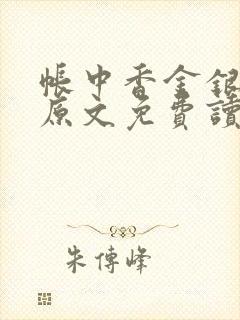 帳中香金銀
原文免費讀
朱傳峰